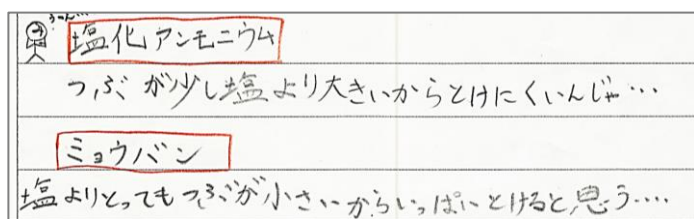 うーん…
塩化アンモニウム
つぶが少し塩より大きいからとけにくいんじゃ…
ミョウバン
塩よりとってもつぶが小さいからいっぱいとけると思う‥‥